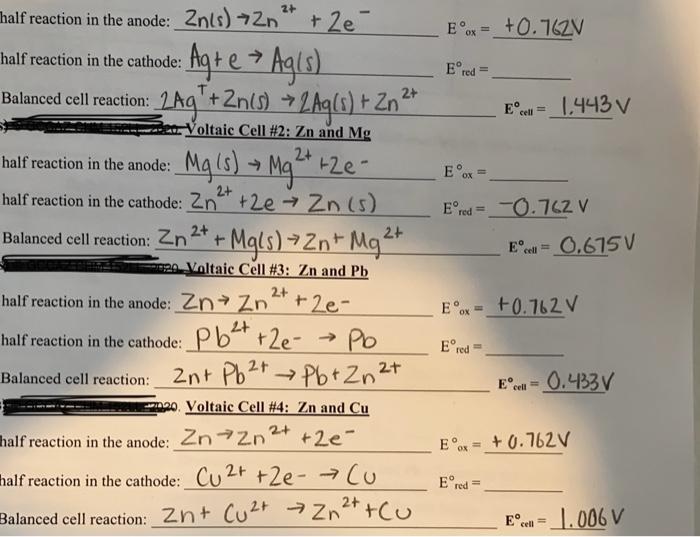 half reaction in the anode: Zn(s) → Zn²⁺ + 2e⁻ E°ox = +0.762V
half reaction in the cathode: Ag+e → Ag(s) E°red =
Balanced cell reaction: 2Ag⁺+Zn(s) → 2Ag(s) + Zn²⁺ E°cell = 1.443 V
Voltaic Cell #2: Zn and Mg
half reaction in the anode: Mg(s) → Mg²⁺ +2e- E°ox =
half reaction in the cathode: Zn²⁺ +2e → Zn (s) E°red = -0.762 V
Balanced cell reaction: Zn²⁺ + Mg(s) → Zn + Mg²⁺ E°cell = 0.675V
Voltaic Cell #3: Zn and Pb
half reaction in the anode: Zn → Zn²⁺ + 2e- E°ox = +0.762 V
half reaction in the cathode: Pb²⁺ +2e- → Pb E°red =
Balanced cell reaction: Zn+ Pb²⁺ → Pb+Zn²⁺ E°cell = 0.433V
2020. Voltaic Cell #4: Zn and Cu
half reaction in the anode: Zn → Zn²⁺ +2e⁻ E°ox = +0.762V
half reaction in the cathode: Cu²⁺ +2e- → Cu E°red =
Balanced cell reaction: Zn+ Cu²⁺ → Zn²⁺+Cu E°cell = 1.006 V